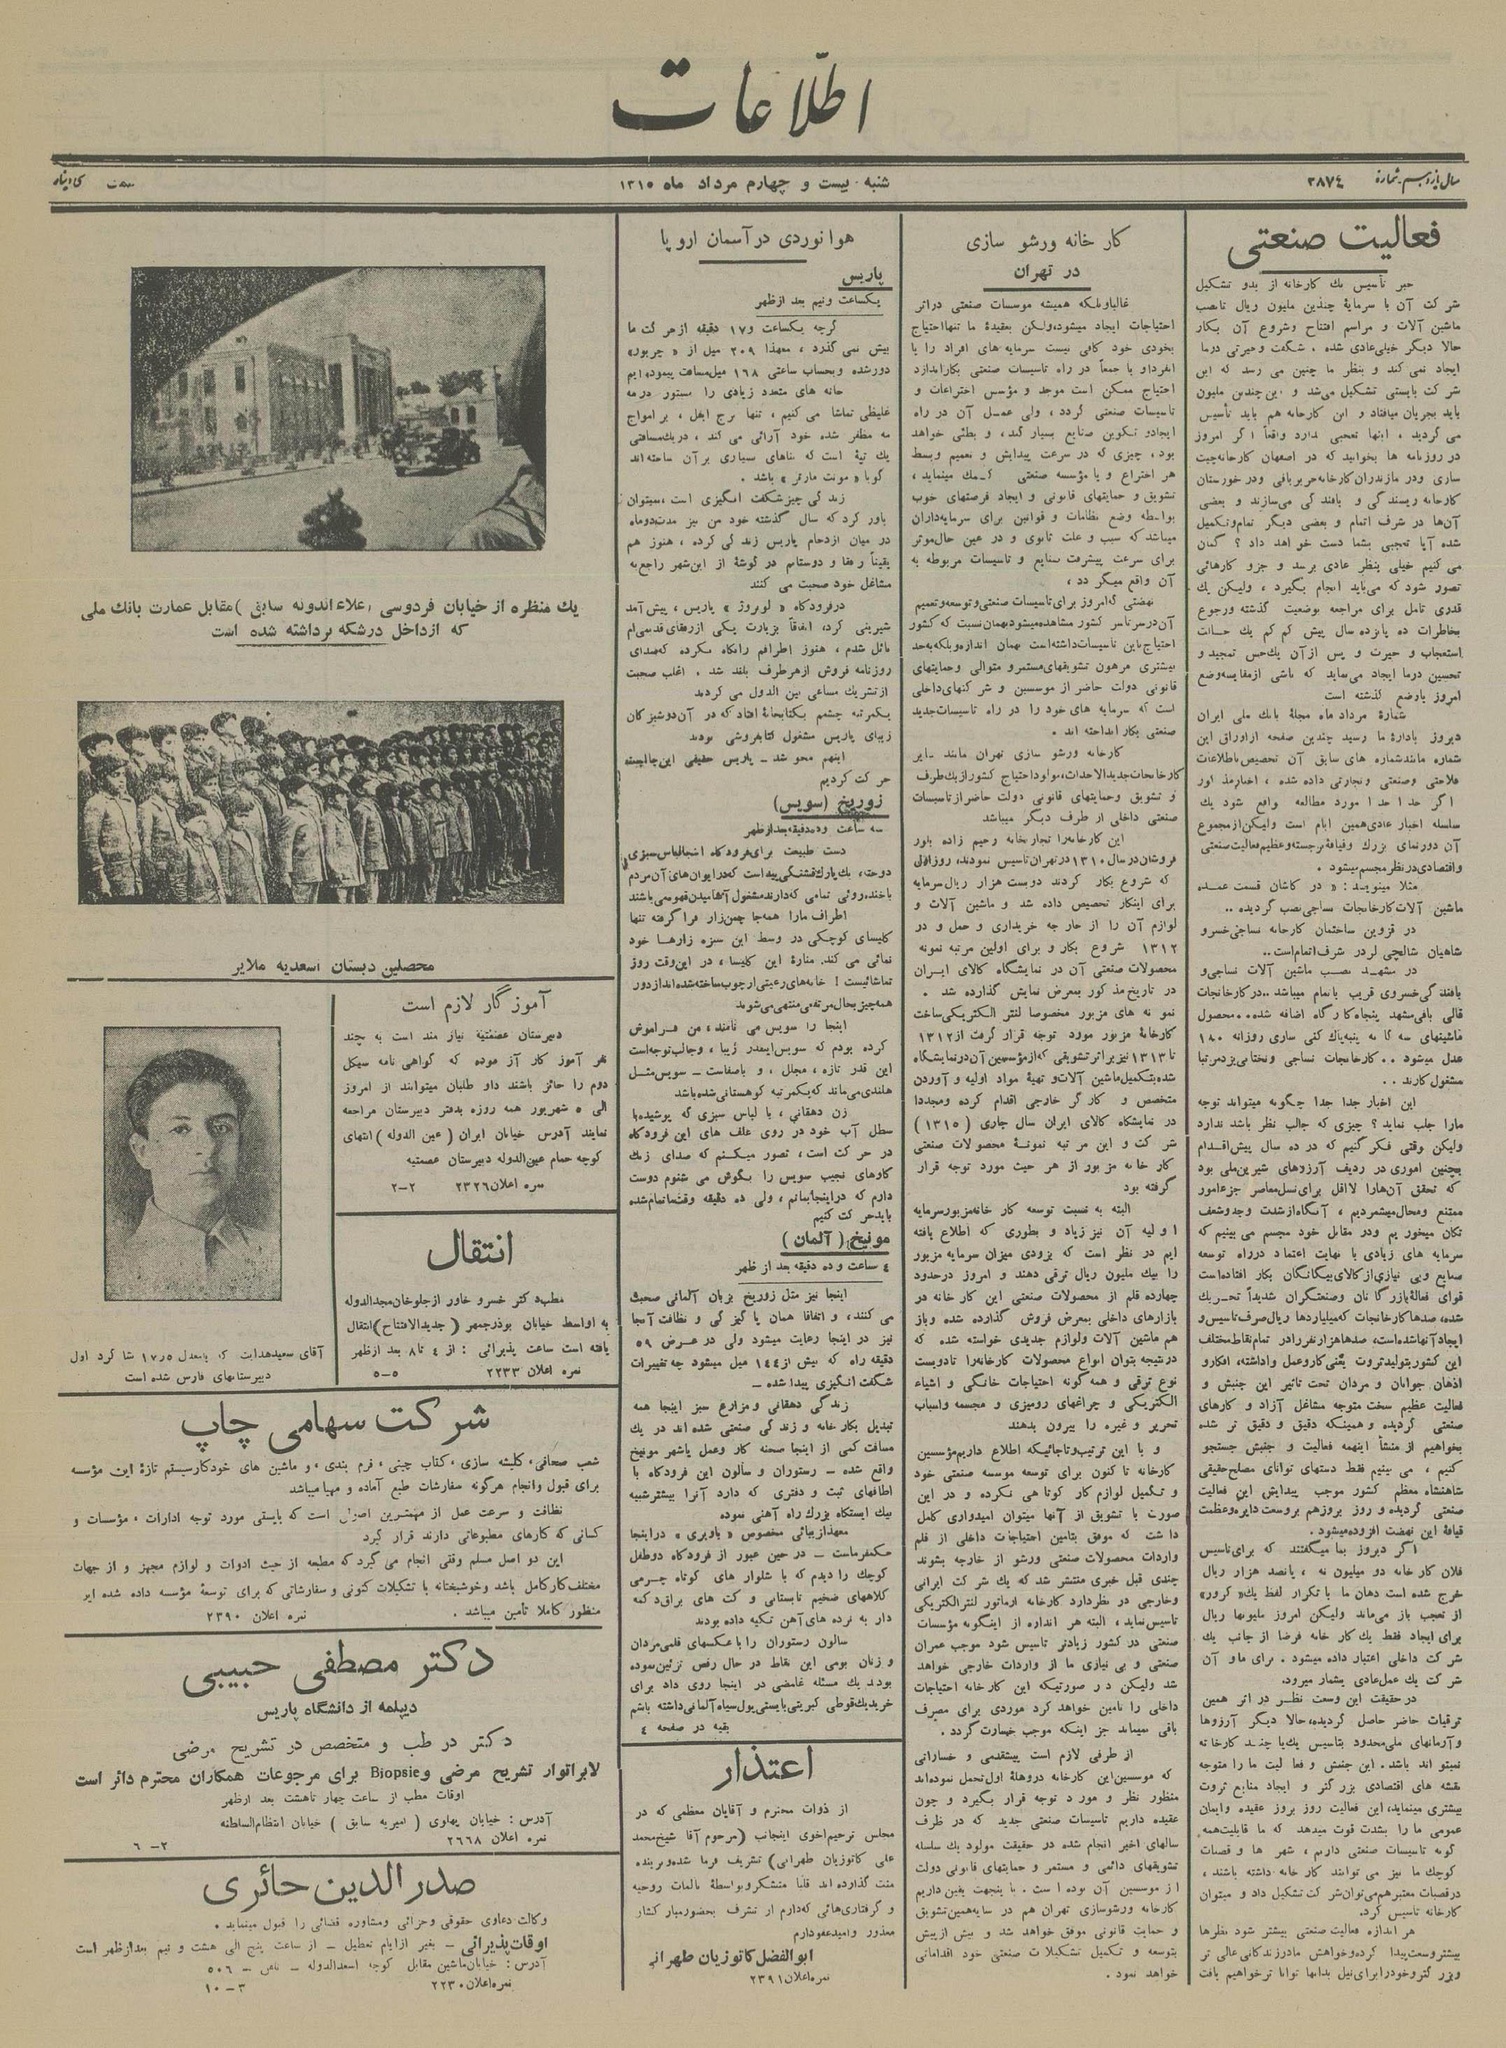 اطلاعات
سال یازدهم - شماره ۲۸۷۴
شنبه - بیست و چهارم مرداد ماه ۱۳۱۵
فعالیت صنعتی
خبر تأسیس یک کارخانه از بدو تشکیل
شرکت آن با سرمایهٔ چندین ملیون ریال تا نصب
ماشین آلات و مراسم افتتاح و شروع آن بکار
حالا دیگر خیلی عادی شده ، شگفت و حیرتی در ما
ایجاد نمی کند و بنظر ما چنین می رسد که این
شرکت بایستی تشکیل می شد و این چندین ملیون
باید بجریان میافتاد و این کارخانه هم باید تأسیس
می گردید . اینها تعجبی ندارد واقعاً اگر امروز
در روزنامه ها بخوانید که در اصفهان کارخانه چیت
سازی و در مازندران کارخانه حریر بافی و در خوزستان
کارخانه ریسندگی و بافندگی می سازند و بعضی
آن‌ها در شرف اتمام و بعضی دیگر تمام و تکمیل
شده آیا تعجبی بشما دست خواهد داد ؟ گمان
می کنیم خیلی بنظر عادی برسد و جزو کارهائی
تصور شود که می باید انجام بگیرد ، ولیکن یک
قدری تامل برای مراجعه بوضعیت گذشته و رجوع
بخاطرات ده پانزده سال پیش کم کم یک حالت
استعجاب و حیرت و پس از آن یک حس تمجید و
تحسین در ما ایجاد می نماید که ناشی از مقایسه وضع
امروز با وضع گذشته است
شمارهٔ مرداد ماه مجلهٔ بانک ملی ایران
دیروز بادارهٔ ما رسید چندین صفحه از اوراق این
شماره مانند شماره های سابق آن تخصیص باطلاعات
فلاحتی و صنعتی و تجارتی داده شده ، اخبار مذکور
اگر جدا جدا مورد مطالعه واقع شود یک
سلسله اخبار عادی همین ایام است ولیکن از مجموع
آن دورنمای بزرگ و قیافهٔ برجسته و عظیم فعالیت صنعتی
و اقتصادی در نظر مجسم میشود .
مثلا مینویسد : « در کاشان قسمت عمده
ماشین آلات کارخانجات نساجی نصب گردیده ..
در قزوین ساختمان کارخانه نساجی خسرو
شاهیان شالچی لر در شرف اتمام است..
در مشهد نصب ماشین آلات نساجی و
بافندگی خسروی قریب باتمام میباشد .. در کارخانجات
قالی بافی مشهد پنجاه کارگاه اضافه شده... محصول
ماشینهای سه گانه پنبه پاک کنی ساری روزانه ۱۸۰
عدل میشود .. کارخانجات نساجی و نختابی یزد مرتبا
مشغول کارند ..
این اخبار جدا جدا چگونه میتواند توجه
ما را جلب نماید ؟ چیزی که جالب نظر باشد ندارد
ولیکن وقتی فکر کنیم که در ده سال پیش اقدام
بچنین اموری در ردیف آرزوهای شیرین ملی بود
که تحقق آن ها را لااقل برای نسل معاصر جزء امور
ممتنع و محال میشمردیم ، آنگاه از شدت وجد و شعف
تکان میخوریم و در مقابل خود مجسم می بینیم که
سرمایه های زیادی با نهایت اعتماد در راه توسعه
صنایع و بی نیازی از کالای بیگانگان بکار افتاده است
قوای فعالهٔ بازرگانان و صنعتگران شدیداً تحریک
شده، صدها کارخانجات که میلیاردها ریال صرف تاسیس و
ایجاد آنها شده است، صدها هزار نفر را در تمام نقاط مختلف
این کشور بتولید ثروت یعنی کار و عمل واداشته، افکار و
اذهان جوانان و مردان تحت تاثیر این جنبش و
فعالیت عظیم سخت متوجه مشاغل آزاد و کارهای
صنعتی گردیده و همینکه دقیق و دقیق تر شده
بخواهیم از منشأ اینهمه فعالیت و جنبش جستجو
کنیم ، می بینیم فقط دستهای توانای مصلح حقیقی
شاهنشاه معظم کشور موجب پیدایش این فعالیت
صنعتی گردیده و روز بروز هم بر وسعت دایره و عظمت
قیافهٔ این نهضت افزوده میشود .
اگر دیروز بما میگفتند که برای تاسیس
فلان کارخانه دو میلیون نه ، پانصد هزار ریال
خرج شده است دهان ما با تکرار لفظ یک « کرور »
از تعجب باز می ماند ولیکن امروز ملیونها ریال
برای ایجاد فقط یک کارخانه فرضا از جانب یک
شرکت داخلی اعتبار داده میشود . برای ما و آن
شرکت یک عمل عادی بشمار میرود.
در حقیقت این وسعت نظر در اثر همین
ترقیات حاضر حاصل گردیده، حالا دیگر آرزوها
و آرمانهای ملی محدود بتاسیس یک یا چند کارخانه
نمیتواند باشد. این جنبش و فعالیت ما را متوجه
نقشه های اقتصادی بزرگتر و ایجاد منابع ثروت
بیشتری مینماید، این فعالیت روز بروز عقیده و ایمان
عمومی ما را بشدت قوت میدهد که ما قابلیت همه
گونه تاسیسات صنعتی داریم ، شهرها و قصبات
کوچک ما نیز می توانند کارخانه داشته باشند ،
در قصبات معتبر هم می توان شرکت تشکیل داد و میتوان
کارخانه تاسیس کرد.
هر اندازه فعالیت صنعتی بیشتر شود نظرها
بیشتر وسعت پیدا کرده و خواهش ما در زندگانی عالی تر
و بزرگتر و خود را برای نیل بدانها توانا تر خواهیم یافت
کارخانه ورشو سازی
در تهران
غالباً و بلکه همیشه موسسات صنعتی در اثر
احتیاجات ایجاد میشود، ولیکن بعقیدهٔ ما تنها احتیاج
بخودی خود کافی نیست سرمایه های افراد را یا
انفرداً و یا جمعاً در راه تاسیسات صنعتی بکار اندازد
احتیاج ممکن است موجد و مؤسس اختراعات و
تاسیسات صنعتی گردد ، ولی عمل آن در راه
ایجاد و تکوین صنایع بسیار کند ، و بطئی خواهد
بود، چیزی که در سرعت پیدایش و تعمیم و بسط
هر اختراع و یا مؤسسه صنعتی کمک مینماید ،
تشویق و حمایتهای قانونی و ایجاد فرصتهای خوب
بواسطه وضع نظامات و قوانین برای سرمایه داران
میباشد که سبب و علت ثانوی و در عین حال موثر
برای سرعت پیشرفت صنایع و تاسیسات مربوطه به
آن واقع میگردد ،
نهضتی که امروز برای تاسیسات صنعتی و توسعه و تعمیم
آن در سرتاسر کشور مشاهده میشود بهمان نسبت که کشور
احتیاج باین تاسیسات داشته است بهمان اندازه و بلکه به حد
بیشتری مرهون تشویقهای مستمر و متوالی و حمایتهای
قانونی دولت حاضر از موسسین و شرکتهای داخلی
است که سرمایه های خود را در راه تاسیسات جدید
صنعتی بکار انداخته اند .
کارخانه ورشو سازی تهران مانند سایر
کارخانجات جدید الاحداث، مولود احتیاج کشور از یک طرف
و تشویق و حمایتهای قانونی دولت حاضر از تاسیسات
صنعتی داخلی از طرف دیگر میباشد
این کارخانه را تجارتخانه رحیم زاده بلور
فروشان در سال ۱۳۱۰ در تهران تاسیس نمودند، روز اولی
که شروع بکار کردند دویست هزار ریال سرمایه
برای اینکار تخصیص داده شد و ماشین آلات و
لوازم آن را از خارجه خریداری و حمل و در
۱۳۱۲ شروع بکار و برای اولین مرتبه نمونه
محصولات صنعتی آن در نمایشگاه کالای ایران
در تاریخ مذکور بمعرض نمایش گذارده شد .
نمونه های مزبور مخصوصا لنتر الکتریکی ساخت
کارخانهٔ مزبور مورد توجه قرار گرفت از ۱۳۱۲
تا ۱۳۱۳ نیز بر اثر تشویقی که از مؤسسین آن در نمایشگاه
شده بتکمیل ماشین آلات و تهیهٔ مواد اولیه و آوردن
متخصص و کارگر خارجی اقدام کرده و مجددا
در نمایشگاه کالای ایران سال جاری ( ۱۳۱۵ )
شرکت و این مرتبه نمونهٔ محصولات صنعتی
کارخانه مزبور از هر حیث مورد توجه قرار
گرفته بود
البته به نسبت توسعه کارخانه مزبور سرمایه
اولیه آن نیز زیاد و بطوری که اطلاع یافته
ایم در نظر است که بزودی میزان سرمایه مزبور
را بیک ملیون ریال ترقی دهند و امروز در حدود
چهارده قلم از محصولات صنعتی این کارخانه در
بازارهای داخلی بمعرض فروش گذارده شده و باز
هم ماشین آلات و لوازم جدیدی خواسته شده که
در نتیجه بتوان انواع محصولات کارخانه را تا دویست
نوع ترقی و همه گونه احتیاجات خانگی و اشیاء
الکتریکی و چراغهای رومیزی و مجسمه و اسباب
تحریر و غیره را بیرون بدهند
و با این ترتیب و تا جائیکه اطلاع داریم مؤسسین
کارخانه تا کنون برای توسعه موسسه صنعتی خود
و تکمیل لوازم کار کوتاهی نکرده و در این
صورت با تشویق از آنها میتوان امیدواری کامل
داشت که موفق بتامین احتیاجات داخلی از قلم
واردات محصولات صنعتی ورشو از خارجه بشوند
چندی قبل خبری منتشر شد که یک شرکت ایرانی
و خارجی در نظر دارد کارخانه ارماتور لنتر الکتریکی
تاسیس نماید ، البته هر اندازه از اینگونه مؤسسات
صنعتی در کشور زیادتر تاسیس شود موجب عمران
صنعتی و بی نیازی ما از واردات خارجی خواهد
شد ولیکن در صورتیکه این کارخانه احتیاجات
داخلی را تامین خواهد کرد موردی برای مصرف
باقی نمیماند جز اینکه موجب خسارت گردد .
از طرفی لازم است پیشقدمی و خساراتی
که موسسین این کارخانه در وهلهٔ اول تحمل نموده اند
منظور نظر و مورد توجه قرار بگیرد و چون
عقیده داریم تاسیسات صنعتی جدید که در ظرف
سالهای اخیر انجام شده در حقیقت مولود یک سلسله
تشویقهای دائمی و مستمر و حمایتهای قانونی دولت
از موسسین آن بوده است . باینجهت یقین داریم
کارخانه ورشوسازی تهران هم در سایه همین تشویق
و حمایت قانونی موفق خواهد شد و بیش از پیش
بتوسعه و تکمیل تشکیلات صنعتی خود اقداماتی
خواهد نمود .
هوا نوردی در آسمان اروپا
پاریس
یکساعت و نیم بعد از ظهر
گرچه یکساعت و ۱۷ دقیقه از حرکت ما
بیش نمی گذرد ، معهذا ۲۰۹ میل از
دور شده و بحساب ساعتی ۱۶۸ میل مسافت پیموده ایم
خانه های متعدد زیادی را مستور در مه
غلیظی تماشا می کنیم ، تنها برج ایفل ، بر امواج
مه مظفر شده خود آرائی می کند ، در یک مسافتی
یک تپهٔ است که بناهای سیاری بر آن ساخته اند
گویا « مونت مارتر » باشد .
زندگی چیز شگفت انگیزی است ، میتوان
باور کرد که سال گذشته خود من نیز مدت دو ماه
در میان ازدحام پاریس زندگی کرده ، هنوز هم
یقیناً رفقا و دوستانم در گوشهٔ از این شهر راجع به
مشاغل خود صحبت می کنند
در فرودگاه « لوبورژ » پاریس ، پیش آمد
شیرینی کرد، اتفاقاً بزیارت یکی از رفقای قدیمی ام
نائل شدم ، هنوز اطرافم را نگاه نکرده که صدای
روزنامه فروش از هر طرف بلند شد . اغلب صحبت
از تشریک مساعی بین الدول می کردند
یکمرتبه چشمم بکتابخانهٔ افتاد که در آن دوشیزگان
زیبای پاریس مشغول کتابفروشی بودند
اینهم محو شد – پاریس حقیقی این جا نیست
حرکت کردیم
زوریخ (سویس)
سه ساعت و ده دقیقه بعد از ظهر
دست طبیعت برای فرودگاه اینجا لباس سبزی
دوخته، یک پارک قشنگی پیداست که در ایوان های آن مردم
با خنده روئی تمامی که دارند مشغول آشامیدن قهوه می باشند
اطراف ما را همه جا چمن زار فرا گرفته تنها
کلیسای کوچکی در وسط این سبزه زارها خود
نمائی می کند. منارهٔ این کلیسا، در این وقت روز
تماشائیست ! خانه های رعیتی از چوب ساخته شده اند از دور
همه چیز بحال مرتبی منتهی می شوند
اینجا را سویس می نامند، من فراموش
کرده بودم که سویس اینقدر زیبا ، و جالب توجه است
این قدر تازه ، مجلل ، و باصفاست – سویس مثل
هلندی می ماند که یکمرتبه کوهستانی شده باشد
زن دهقانی ، با لباس سبزی که پوشیده با
سطل آب خود در روی علف های این فرودگاه
در حرکت است ، تصور میکنم که صدای زنگ
گاوهای نجیب سویس را بگوش می شنوم دوست
دارم که در اینجا بمانم ، ولی ده دقیقه وقت ما تمام شده
باید حرکت کنیم
مونیخ ( آلمان )
۴ ساعت و ده دقیقه بعد از ظهر
اینجا نیز مثل زوریخ بزبان آلمانی صحبت
می کنند ، و اتفاقا همان پاکیزگی و نظافت آنجا
نیز در اینجا رعایت میشود ولی در عرض ۵۹
دقیقه راه که بیش از ۱۴۴ میل میشود چه تغییرات
شگفت انگیزی پیدا شده –
زندگی دهقانی و مزارع سبز اینجا همه
تبدیل بکارخانه و زندگی صنعتی شده اند در یک
مسافت کمی از اینجا صحنه کار و عمل یا شهر مونیخ
واقع شده – رستوران و سالون این فرودگاه با
اطاقهای ثبت و دفتری که دارد آنرا بیشتر شبیه
بیک ایستگاه بزرگ راه آهنی نموده
معهذا زیبائی مخصوص « باویری » در اینجا
حکمفرماست – در حین عبور از فرودگاه دو طفل
کوچک را دیدم که با شلوار های کوتاه چرمی
کلاههای ضخیم تابستانی و کت های براق دکمه
دار به نرده های آهن تکیه داده بودند
سالون رستوران را با عکسهای قلمی مردان
و زنان بومی این نقاط در حال رقص تزئین نموده
بودند یک مسئله غامضی در اینجا روی داد برای
خرید یک قوطی کبریتی بایستی پول سیاه آلمانی داشته باشم
بقیه در صفحه ۴
اعتذار
از ذوات محترم و آقایان معظمی که در
مجلس ترحیم اخوی اینجانب (مرحوم آقا شیخ محمد
علی کاتوزیان طهرانی) تشریف فرما شده و بنده
منت گذارده اند قلبا متشکر و بواسطهٔ تالمات روحیه
و گرفتاری هائی که دارم از تشرف بحضور مبارکشان
معذور و امید عفو دارم
ابوالفضل کاتوزیان طهرانی
نمره اعلان ۲۳۹۱
یک منظره از خیابان فردوسی (علاءالدوله سابق ) مقابل عمارت بانک ملی
که از داخل درشکه برداشته شده است
محصلین دبستان اسعدیه ملایر
آموزگار لازم است
دبیرستان عصمتیه نیاز مند است به چند
نفر آموزگار آزموده که گواهی نامه سیکل
دوم را حائز باشند داوطلبان میتوانند از امروز
الی ۵ شهریور همه روزه بدفتر دبیرستان مراجعه
نمایند آدرس خیابان ایران ( عین الدوله ) انتهای
کوچه حمام عین الدوله دبیرستان عصمتیه
نمره اعلان ۲۳۲۶ ۲-۲
انتقال
مطب دکتر خسرو خاور از جلو خان مجدالدوله
به اواسط خیابان بوذرجمهر ( جدید الافتتاح ) انتقال
یافته است ساعت پذیرائی : از ۴ تا ۸ بعد از ظهر
نمره اعلان ۲۲۳۳ ۵-۵
آقای سعید هدایت که با معدل ۱۷٫۵ شاگرد اول
دبیرستانهای فارس شده است
شرکت سهامی چاپ
شعب صحافی، کلیشه سازی ، کتاب چینی ، فرم بندی ، و ماشین های خودکار سیستم تازهٔ این مؤسسه
برای قبول و انجام هرگونه سفارشات طبع آماده و مهیا میباشد
نظافت و سرعت عمل از مهمترین اصولی است که بایستی مورد توجه ادارات ، مؤسسات و
کسانی که کارهای مطبوعاتی دارند قرار گیرد
این دو اصل مسلم وقتی انجام می گیرد که مطبعه از حیث ادوات و لوازم مجهز و از جهات
مختلف کار کامل باشد و خوشبختانه با تشکیلات کنونی و سفارشاتی که برای توسعهٔ مؤسسه داده شده این
منظور کاملا تأمین میباشد . نمره اعلان ۲۳۹۰
دکتر مصطفی حبیبی
دیپلمه از دانشگاه پاریس
دکتر در طب و متخصص در تشریح مرضی
لابراتوار تشریح مرضی و Biopsie برای مرجوعات همکاران محترم دائر است
اوقات مطب از ساعت چهار تا هشت بعد از ظهر
آدرس : خیابان پهلوی ( امیریه سابق ) خیابان انتظام السلطنه
نمره اعلان ۲۶۶۸ ۲-۶
صدرالدین حائری
وکالت دعاوی حقوقی و جزائی و مشاوره قضائی را قبول مینماید .
اوقات پذیرائی – بغیر از ایام تعطیل – از ساعت پنج الی هشت و نیم بعد از ظهر است
آدرس : خیابان ماشین مقابل کوچه اسعدالدوله – تلفن – ۵۰۶
نمره اعلان ۲۲۳۰ ۳-۱۰